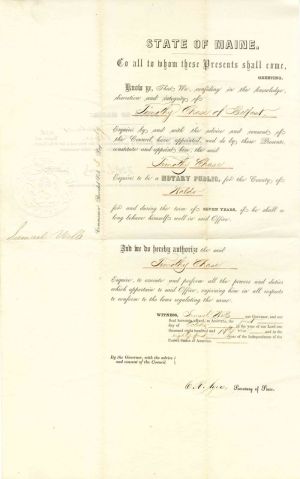 STATE OF MAINE.
To all to whom these Presents shall come,
GREETING.
Know ye, That We, confiding in the knowledge,
discretion and integrity of
Timothy Chase of Belfast
Esquire, by, and with the advice and consent, of
the Council, have appointed, and do by these Presents,
constitute and appoint him, the said
Timothy Chase
Esquire, to be a NOTARY PUBLIC, for the County of
Waldo
for and during the term of SEVEN YEARS, if he shall so
long behave himself well in said Office.
And we do hereby authorize the said
Timothy Chase
Esquire, to execute and perform all the powers and duties
which appertain to said Office, enjoining him in all respects
to conform to the laws regulating the same.
WITNESS, Samuel Wells our Governor, and our
Seal hereunto affixed, at Augusta, the
day of in the year of our Lord one
thousand eight hundred and and in the
year of the Independence of the
United States of America.
By the Governor, with the advice
and consent of the Council.
Secretary of State.
Samuel Wells